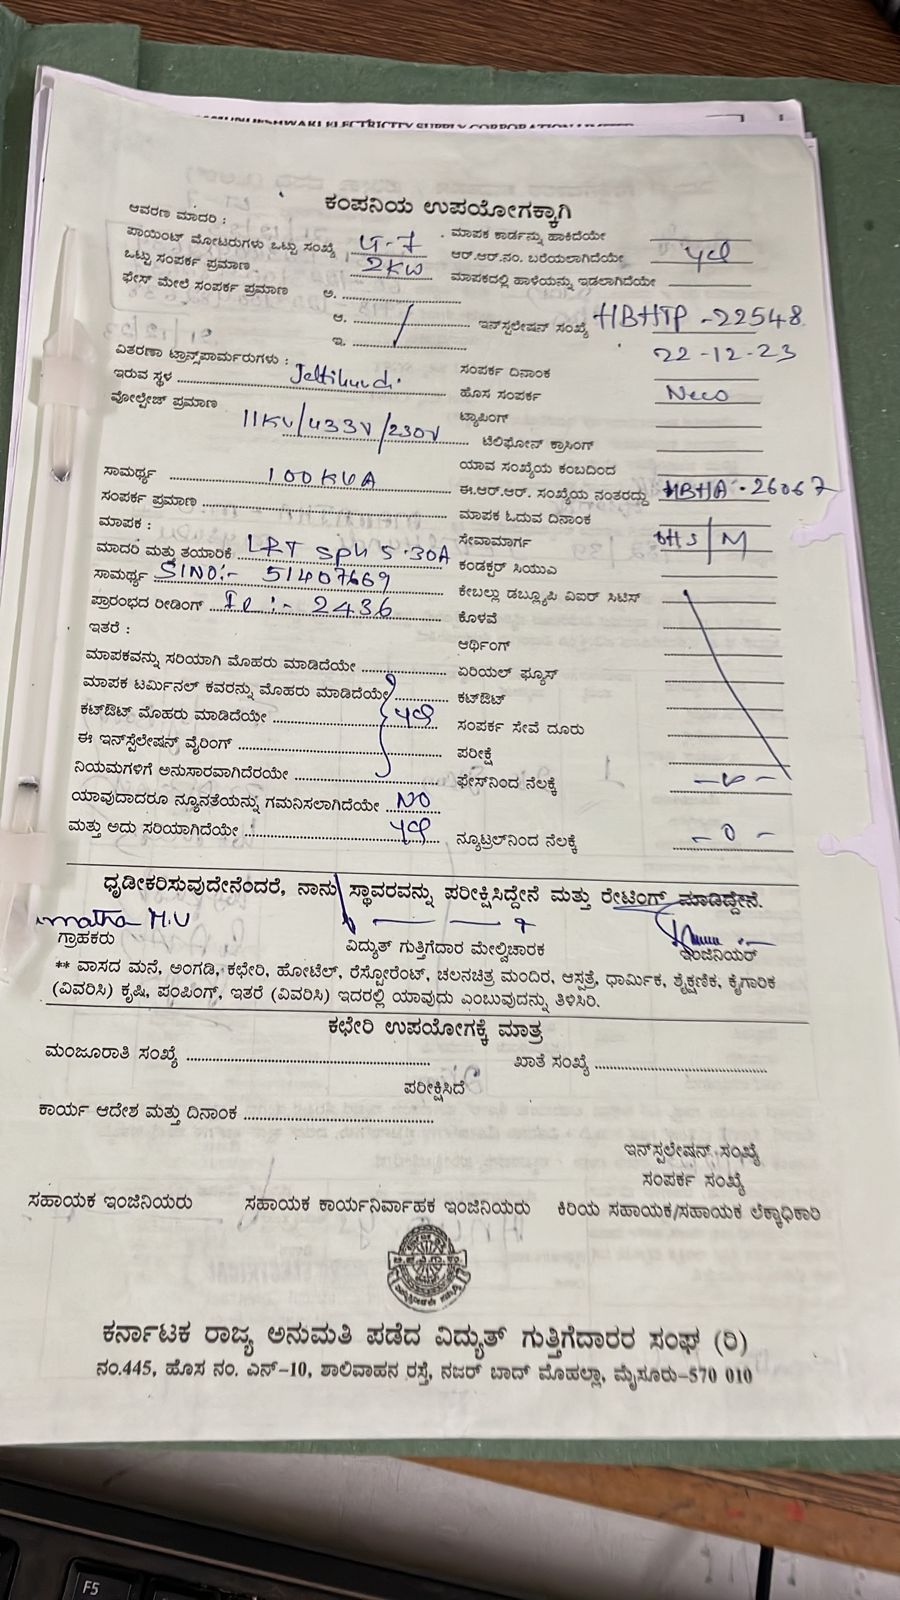 ELECTRICITY SUPPLY CORPORATION
ಕಂಪನಿಯ ಉಪಯೋಗಕ್ಕಾಗಿ
ಆವರಣ ಮಾದರಿ :
ಮಾಪಕ ಕಾರ್ಡನ್ನು ಹಾಕಿದೆಯೇ
ಪಾಯಿಂಟ್ ಮೋಟರುಗಳು ಒಟ್ಟು ಸಂಖ್ಯೆ
ಆರ್.ಆರ್.ನಂ. ಬರೆಯಲಾಗಿದೆಯೇ
ಒಟ್ಟು ಸಂಪರ್ಕ ಪ್ರಮಾಣ 2KW
ಮಾಪಕದಲ್ಲಿ ಹಾಳೆಯನ್ನು ಇಡಲಾಗಿದೆಯೇ
ಫೇಸ್ ಮೇಲೆ ಸಂಪರ್ಕ ಪ್ರಮಾಣ ಅ.
ಆ.
ಇ.
ಇನ್‌ಸ್ಟಲೇಷನ್ ಸಂಖ್ಯೆ HBHTP -22548
ವಿತರಣಾ ಟ್ರಾನ್ಸ್‌ಪಾರ್ಮರುಗಳು :
ಸಂಪರ್ಕ ದಿನಾಂಕ 22-12-23
ಇರುವ ಸ್ಥಳ
ಹೊಸ ಸಂಪರ್ಕ
ವೋಲ್ಟೇಜ್ ಪ್ರಮಾಣ 11KV/433V/230V
ಟ್ಯಾಪಿಂಗ್
ಟೆಲಿಫೋನ್ ಕ್ರಾಸಿಂಗ್
ಯಾವ ಸಂಖ್ಯೆಯ ಕಂಬದಿಂದ
ಸಾಮರ್ಥ್ಯ 100KVA
ಈ.ಆರ್.ಆರ್. ಸಂಖ್ಯೆಯ ನಂತರದ್ದು HBHA-26067
ಸಂಪರ್ಕ ಪ್ರಮಾಣ
ಮಾಪಕ ಓದುವ ದಿನಾಂಕ
ಮಾಪಕ :
ಸೇವಾಮಾರ್ಗ
ಮಾದರಿ ಮತ್ತು ತಯಾರಿಕೆ L&T 5.30A
ಕಂಡಕ್ಟರ್ ಸಿಯುಎ
ಸಾಮರ್ಥ್ಯ SlNO:- 51407669
ಕೇಬಲ್ಲು ಡಬ್ಲ್ಯೂಪಿ ವಿಐರ್ ಸಿಟಿಸ್
ಪ್ರಾರಂಭದ ರೀಡಿಂಗ್ :- 2436
ಕೊಳವೆ
ಇತರೆ :
ಆರ್ಥಿಂಗ್
ಮಾಪಕವನ್ನು ಸರಿಯಾಗಿ ಮೊಹರು ಮಾಡಿದೆಯೇ
ಏರಿಯಲ್ ಫ್ಯೂಸ್
ಮಾಪಕ ಟರ್ಮಿನಲ್ ಕವರನ್ನು ಮೊಹರು ಮಾಡಿದೆಯೇ
ಕಟ್‌ಔಟ್
ಕಟ್‌ಔಟ್ ಮೊಹರು ಮಾಡಿದೆಯೇ
ಸಂಪರ್ಕ ಸೇವೆ ದೂರು
ಈ ಇನ್‌ಸ್ಟೆಲೇಷನ್ ವೈರಿಂಗ್
ಪರೀಕ್ಷೆ
ನಿಯಮಗಳಿಗೆ ಅನುಸಾರವಾಗಿದೆರಯೇ
ಫೇಸ್‌ನಿಂದ ನೆಲಕ್ಕೆ
ಯಾವುದಾದರೂ ನ್ಯೂನತೆಯನ್ನು ಗಮನಿಸಲಾಗಿದೆಯೇ NO
ಮತ್ತು ಅದು ಸರಿಯಾಗಿದೆಯೇ
ನ್ಯೂಟ್ರಲ್‌ನಿಂದ ನೆಲಕ್ಕೆ - 0 -
ಧೃಡೀಕರಿಸುವುದೇನೆಂದರೆ, ನಾನು ಸ್ಥಾವರವನ್ನು ಪರೀಕ್ಷಿಸಿದ್ದೇನೆ ಮತ್ತು ರೇಟಿಂಗ್ ಮಾಡಿದ್ದೇನೆ.
ಗ್ರಾಹಕರು ವಿದ್ಯುತ್ ಗುತ್ತಿಗೆದಾರ ಮೇಲ್ವಿಚಾರಕ ಇಂಜಿನಿಯರ್
** ವಾಸದ ಮನೆ, ಅಂಗಡಿ, ಕಛೇರಿ, ಹೋಟೆಲ್, ರೆಸ್ಟೋರೆಂಟ್, ಚಲನಚಿತ್ರ ಮಂದಿರ, ಆಸ್ಪತ್ರೆ, ಧಾರ್ಮಿಕ, ಶೈಕ್ಷಣಿಕ, ಕೈಗಾರಿಕ
(ವಿವರಿಸಿ) ಕೃಷಿ, ಪಂಪಿಂಗ್, ಇತರೆ (ವಿವರಿಸಿ) ಇದರಲ್ಲಿ ಯಾವುದು ಎಂಬುವುದನ್ನು ತಿಳಿಸಿರಿ.
ಕಛೇರಿ ಉಪಯೋಗಕ್ಕೆ ಮಾತ್ರ
ಮಂಜೂರಾತಿ ಸಂಖ್ಯೆ ಖಾತೆ ಸಂಖ್ಯೆ
ಪರೀಕ್ಷಿಸಿದೆ
ಕಾರ್ಯ ಆದೇಶ ಮತ್ತು ದಿನಾಂಕ
ಇನ್‌ಸ್ಟಲೇಷನ್ ಸಂಖ್ಯೆ
ಸಂಪರ್ಕ ಸಂಖ್ಯೆ
ಸಹಾಯಕ ಇಂಜಿನಿಯರು ಸಹಾಯಕ ಕಾರ್ಯನಿರ್ವಾಹಕ ಇಂಜಿನಿಯರು ಕಿರಿಯ ಸಹಾಯಕ/ಸಹಾಯಕ ಲೆಕ್ಕಾಧಿಕಾರಿ
ಕರ್ನಾಟಕ ರಾಜ್ಯ ಅನುಮತಿ ಪಡೆದ ವಿದ್ಯುತ್ ಗುತ್ತಿಗೆದಾರರ ಸಂಘ (ರಿ)
ನಂ.445, ಹೊಸ ನಂ. ಎನ್-10, ಶಾಲಿವಾಹನ ರಸ್ತೆ, ನಜರ್ ಬಾದ್ ಮೊಹಲ್ಲಾ, ಮೈಸೂರು-570 010
F5